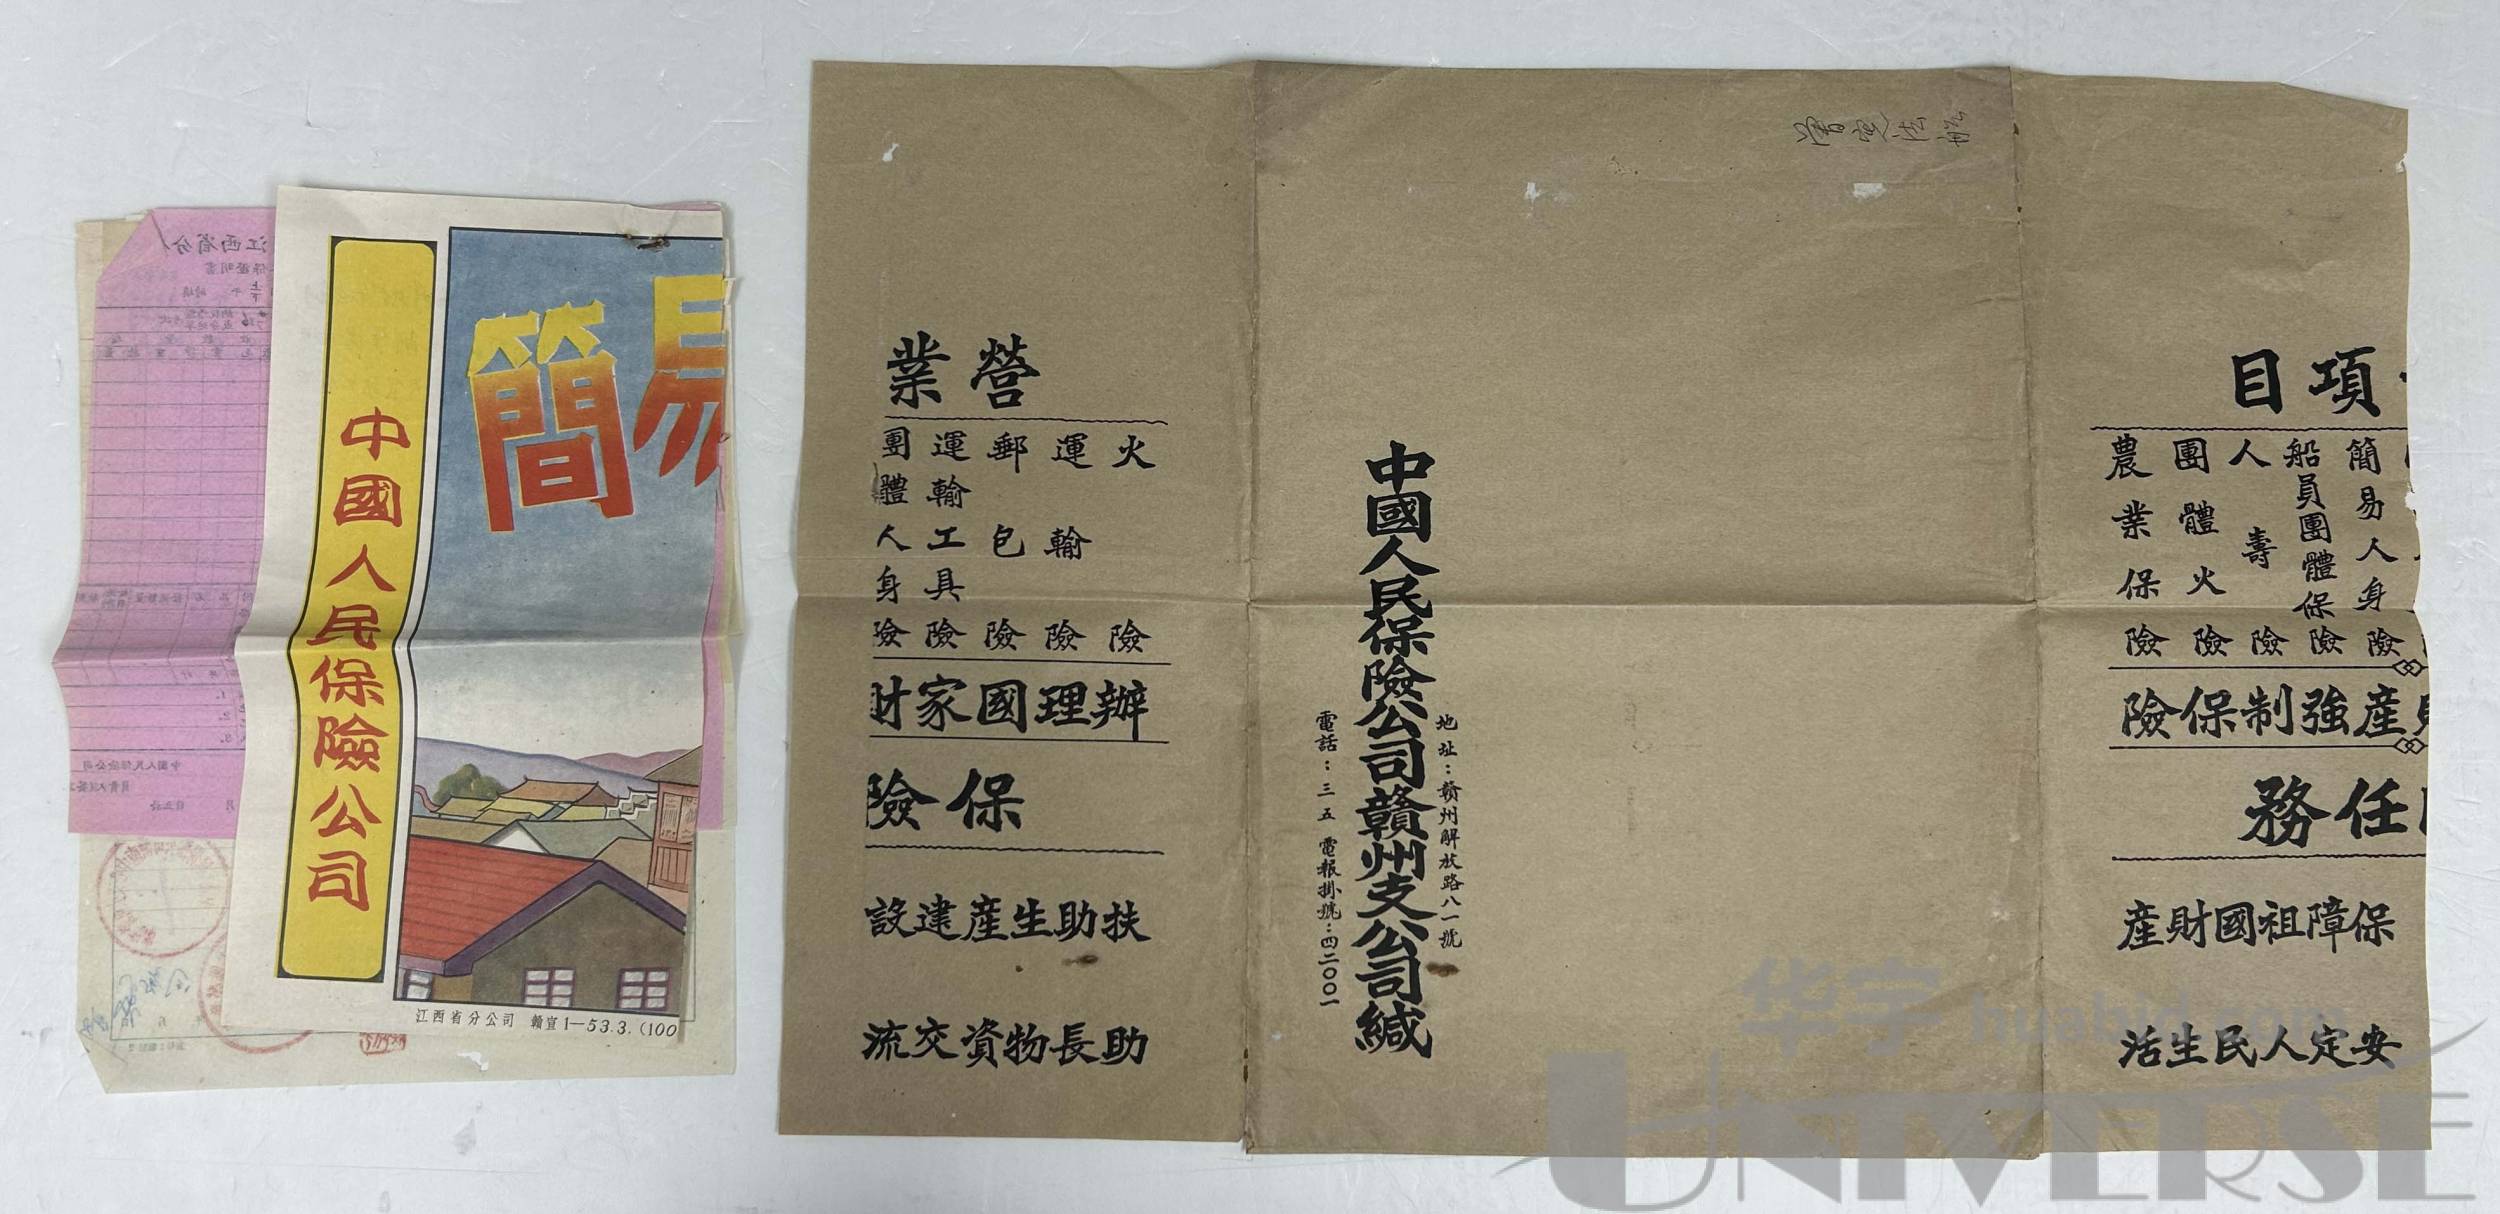 簡易
中國人民保險公司
江西省分公司 贛宣1—53.3.(100
江西省分
營業
火險
運輸險
郵包險
運輸工具險
團體人身險
辦理國家財
保險
扶助生產建設
助長物資交流
地址：贛州解放路八一號
中國人民保險公司贛州支公司緘
電話：三五 電報掛號：四二〇〇一
項目
簡易人身險
船員團體保險
人壽險
團體火險
農業保險
產強制保險
任務
保障祖國財產
安定人民生活
华宇 huabid.com
UNIVERSE